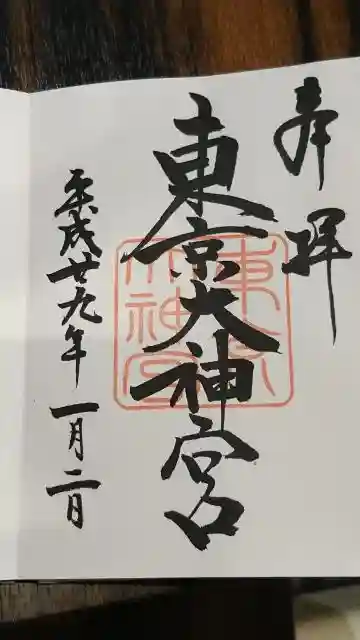 奉拝
東京大神宮
東京大神宮
平成廿九年一月二日